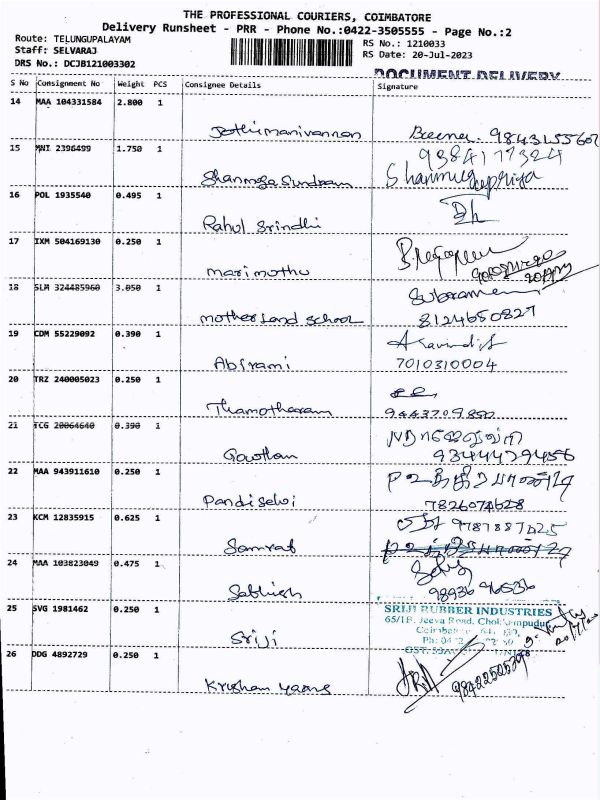 THE PROFESSIONAL COURIERS, COIMBATORE
Delivery Runsheet - PRR - Phone No.:0422-3505555 - Page No.:2
Route: TELUNGUPALAYAM
Staff: SELVARAJ
DRS No.: DCJB121003302
RS No.: 1210033
RS Date: 20-Jul-2023
DOCUMENT DELIVERY
S No Consignment No Weight PCS Consignee Details Signature
14 MAA 104331584 2.800 1
Jothimanivannan Beena. 9843155602
15 MNI 2396499 1.750 1
9384177324
Shanmuga Sundram Shanmugapriya
16 POL 1935540 0.495 1
Rahul Srindhi
17 IXM 504169130 0.250 1
Marimuthu
18 SLM 324485960 3.050 1
Subramani
motherland school 8124650827
19 CDM 55229092 0.390 1
Aravindh
Abirami 7010310004
20 TRZ 240005023 0.250 1
Thamotharam 9443709890
21 TCG 20064640 0.390 1
Gowtham 9344479456
22 MAA 943911610 0.250 1
Pandiselvi 7826074628
23 KCM 12835915 0.625 1
9787887025
Samrat
24 MAA 103823049 0.475 1
Sathish 98936 96536
25 SVG 1981462 0.250 1
SRIJI RUBBER INDUSTRIES
65/1B, Jeeva Road, Chokkampudur
Coimbatore
Sriji
26 DDG 4892729 0.250 1
9842252539